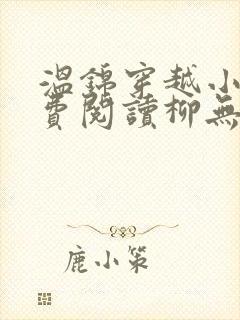 溫錦穿越小
費閱讀柳無
鹿小策